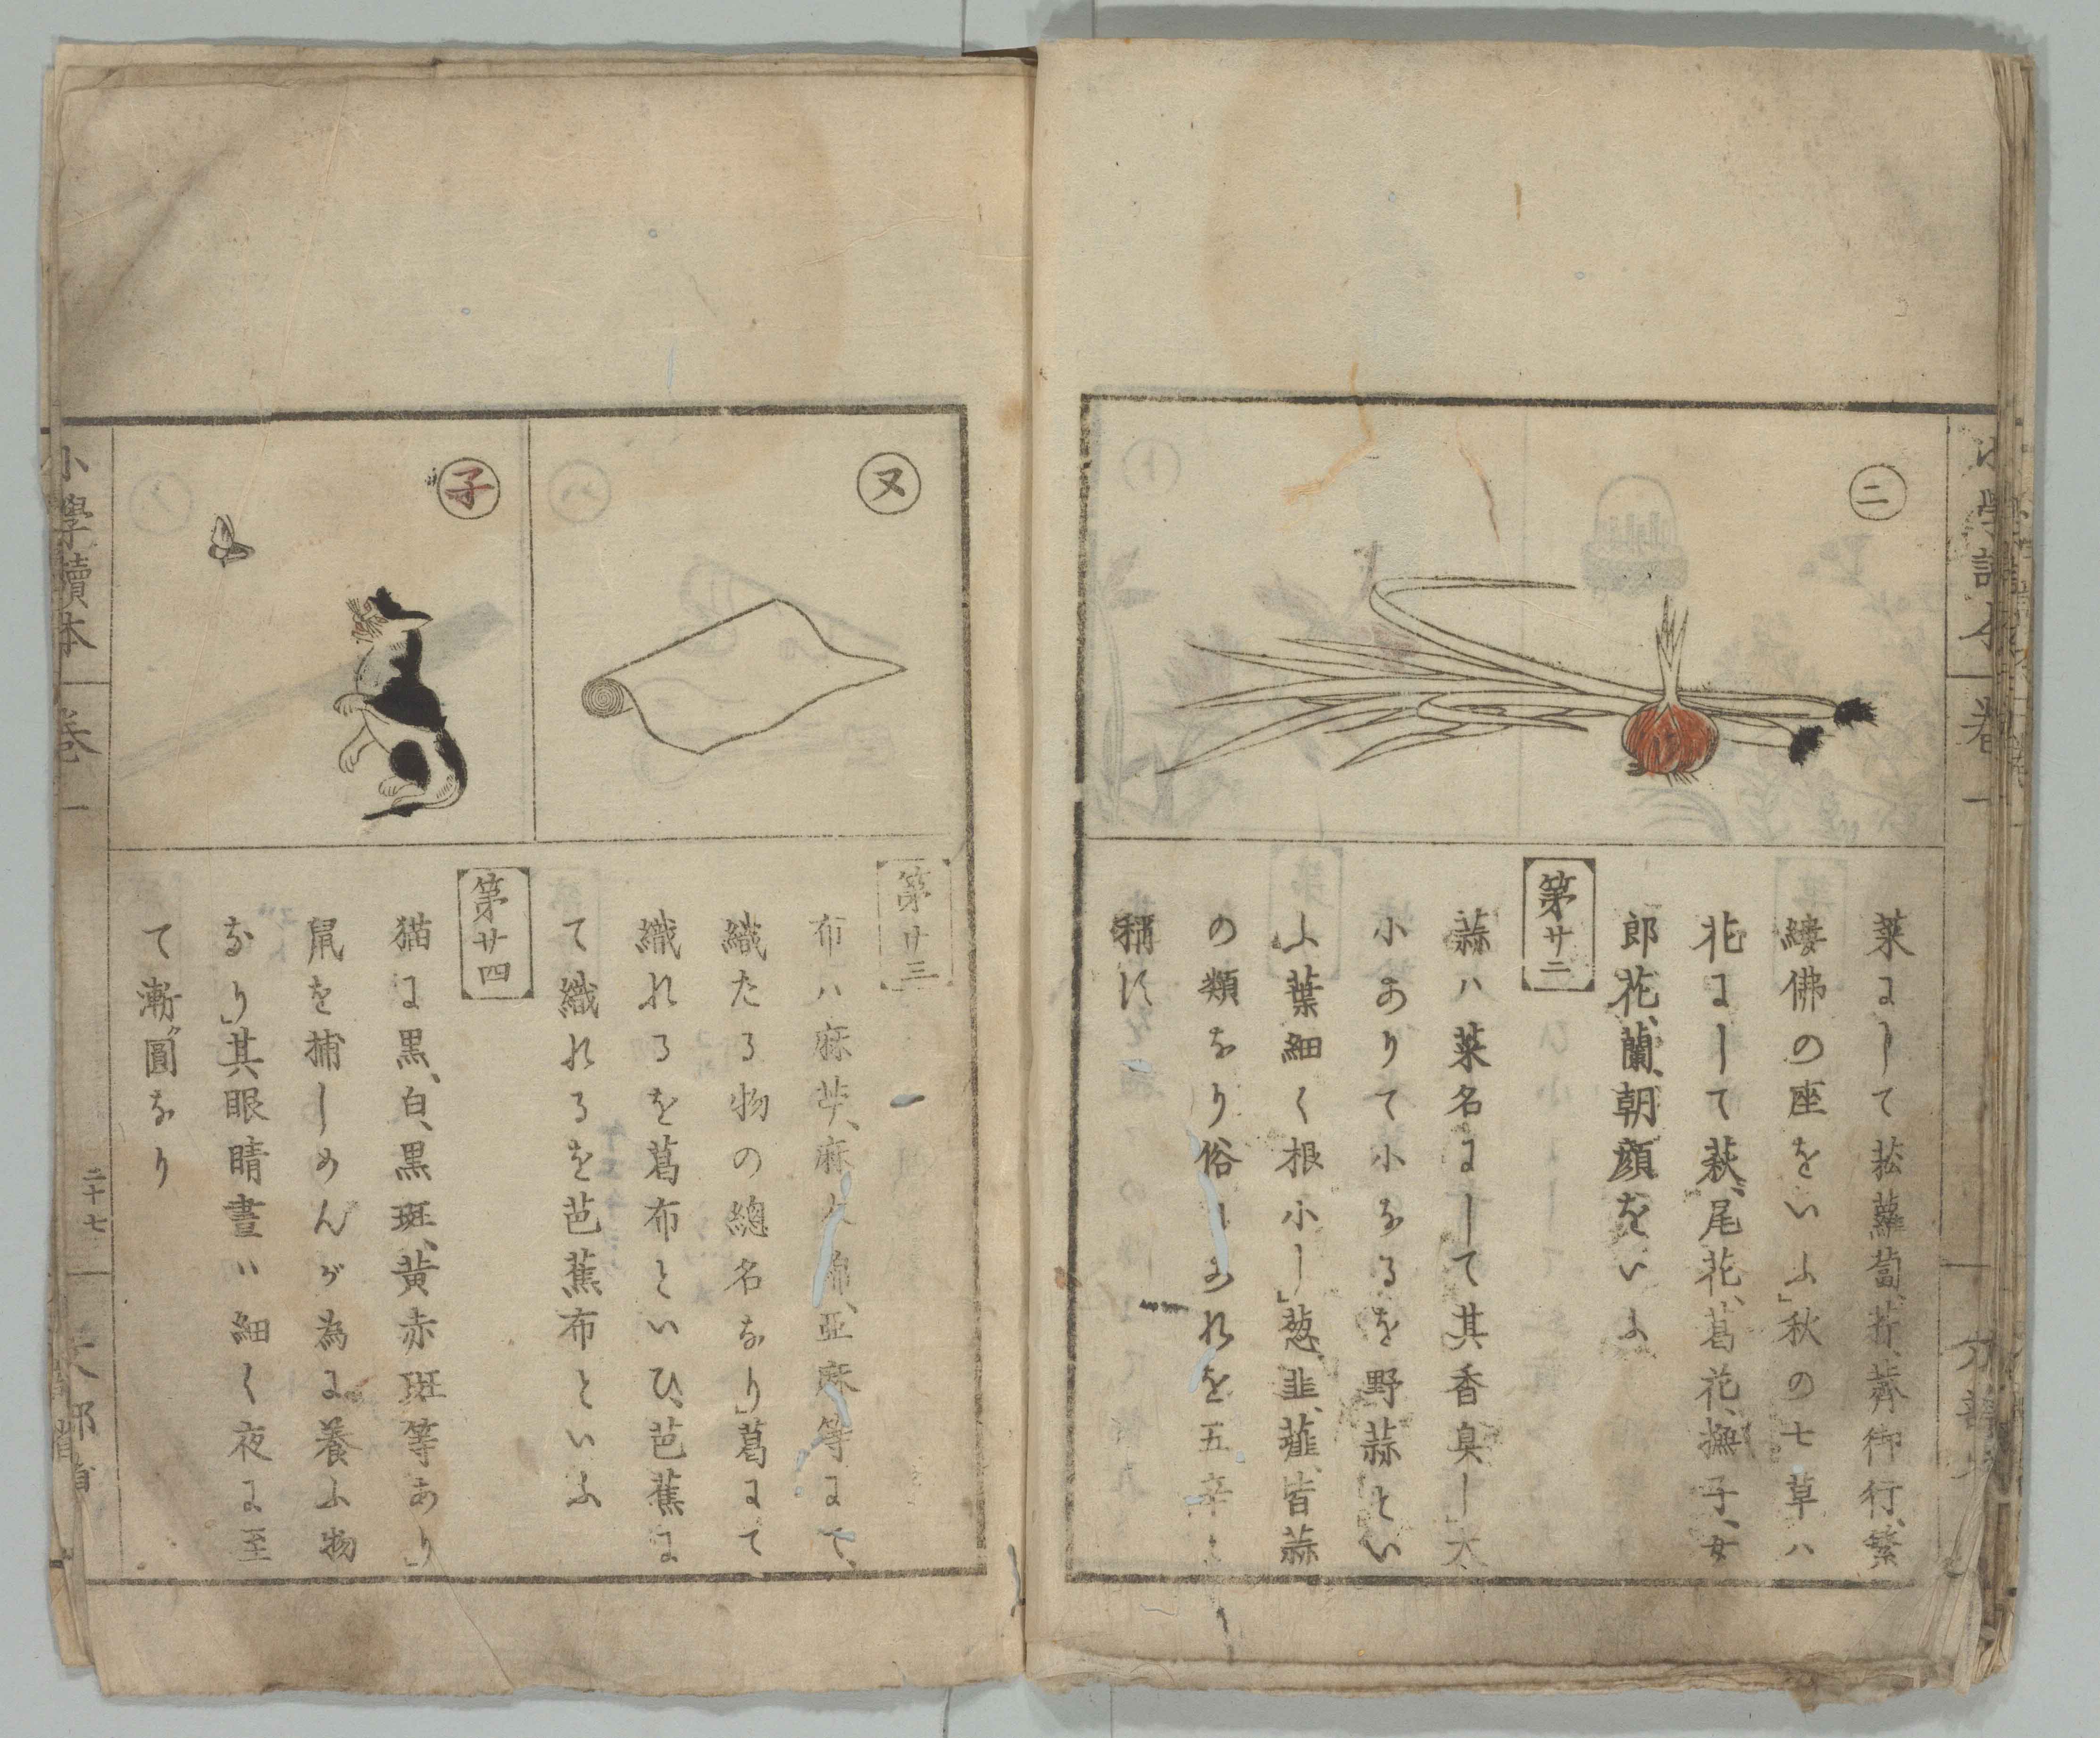 小學讀本
卷一
㊁
菜にして菘蘿蔔、芹、薺、御行、繁
縷、佛の座をいふ」秋の七草ハ
花にして萩、尾花、葛花、撫子、女
郎花、蘭、朝顔をいふ
第廿二
蒜ハ菜名にして其香臭し」大
小ありて小なるを野蒜とい
ふ葉細く根小し」葱、韭、薤、皆蒜
の類なり俗にこれを五辛と
稱す
ヌ
第廿三
布ハ麻苧、麻、木綿、亜麻等にて、
織たる物の總名なり」葛にて
織れるを葛布といひ、芭蕉に
て織れるを芭蕉布といふ
子
第廿四
猫に黒、白、黒斑、黄赤斑等あり」
鼠を捕しめんが為に養ふ物
なり」其眼睛晝ハ細く夜に至
て漸〻圓なり
小學讀本
卷一
二十七
文部省